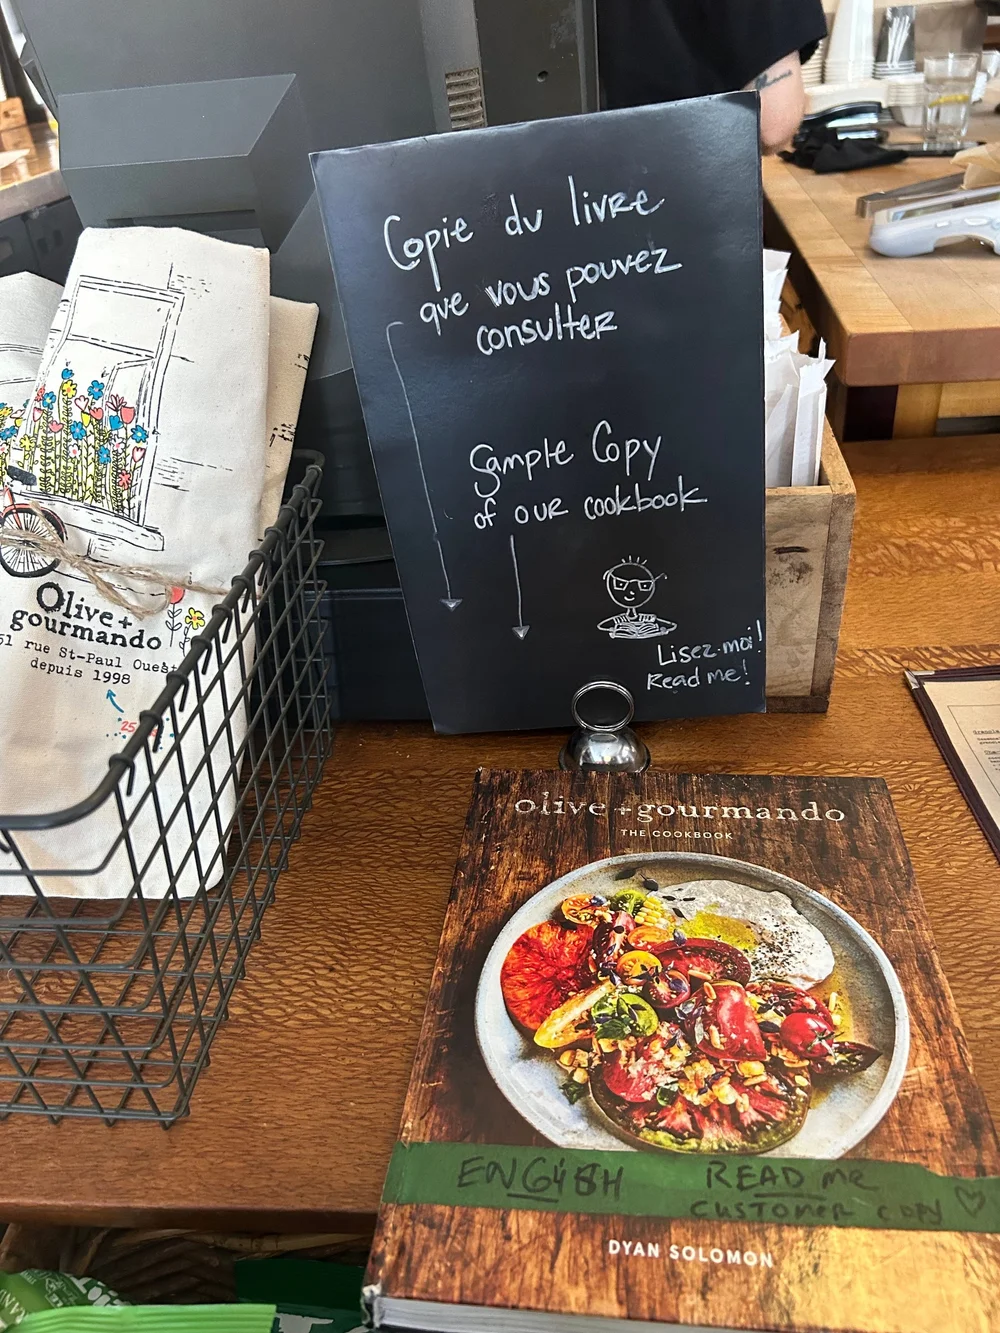 Copie du livre
que vous pouvez
consulter
Sample Copy
of our cookbook
Lisez-moi!
Read me!
Olive +
gourmando
51 rue St-Paul Ouest
depuis 1998
olive + gourmando
THE COOKBOOK
ENGLISH
READ me
CUSTOMER COPY
DYAN SOLOMON